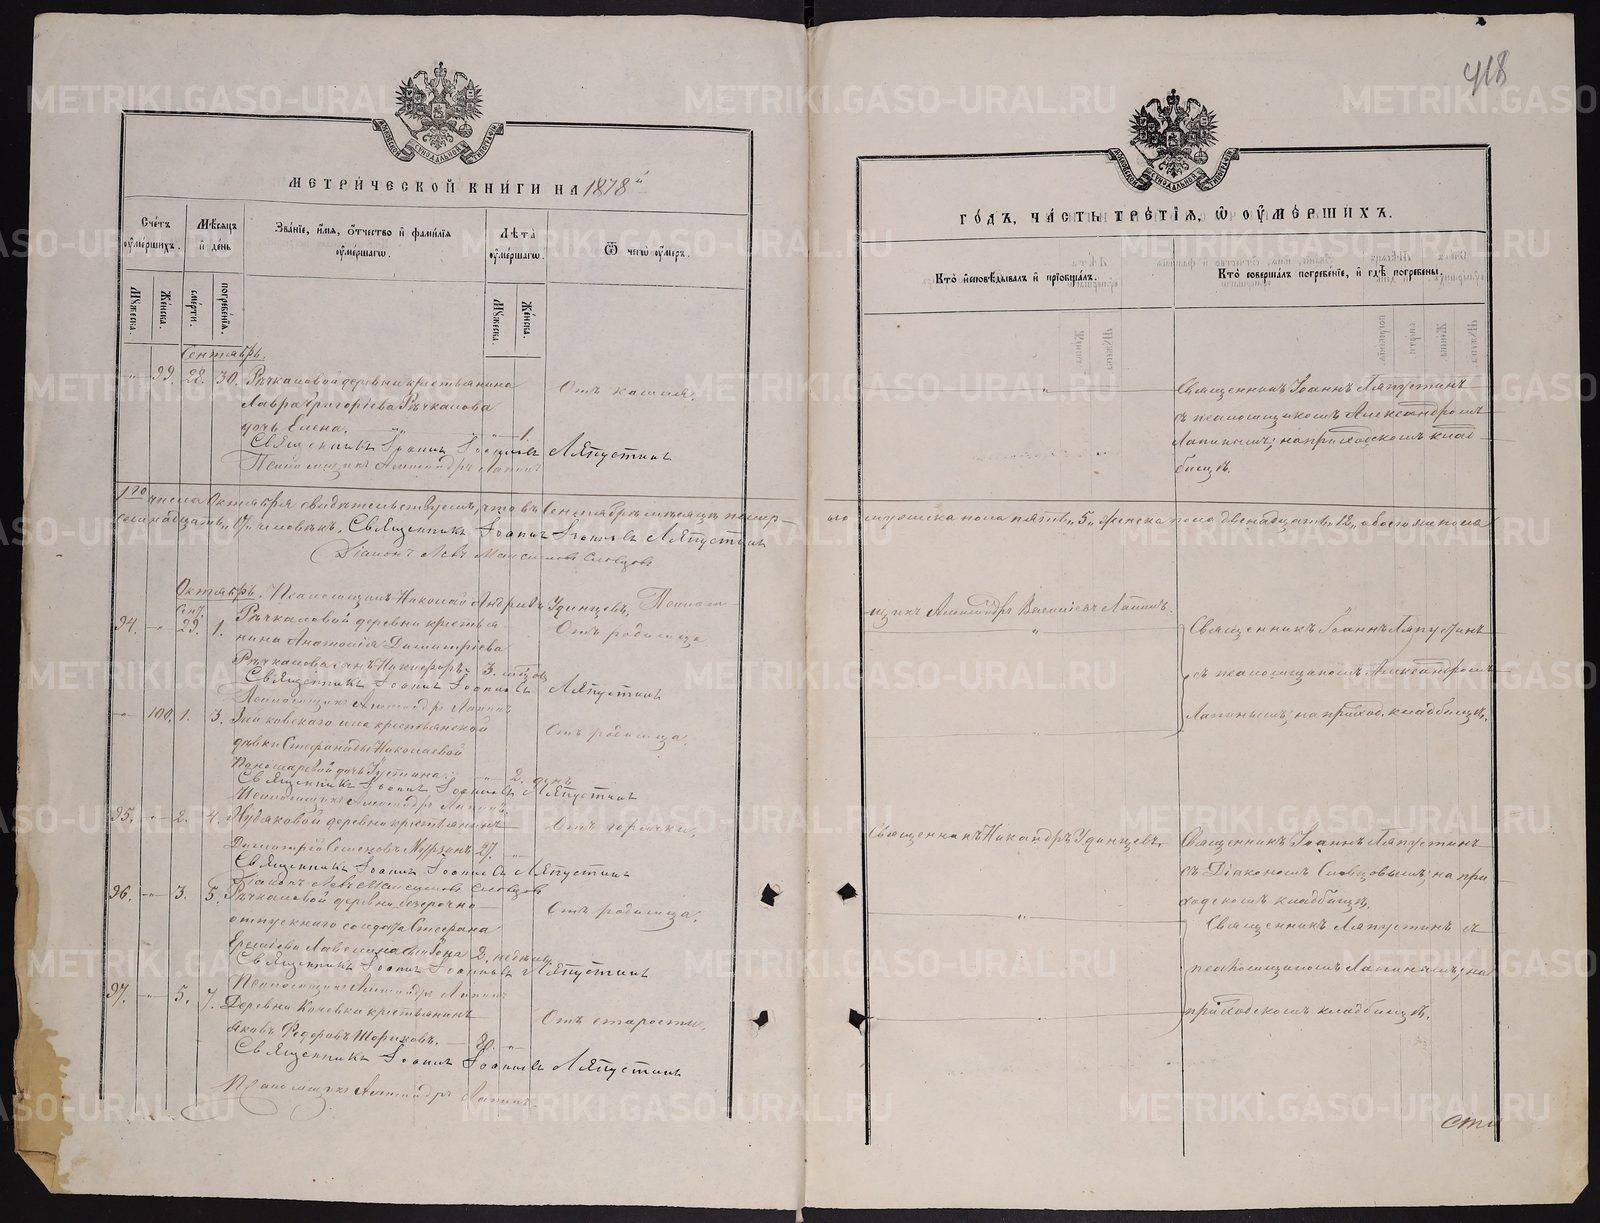 418
МЕТРИЧЕСКОЙ КНИГИ НА 1878 й
Счетъ умершихъ.
Мѣсяцъ и день
Званіе, имя, отчество и фамилія умершаго.
Лѣта умершаго.
Отъ чего умеръ.
Мужеска.
Женска.
смерти.
погребенія.
Мужеска.
Женска.
Сентябрь.
" 99. 28. 30. Рѣчкаловой деревни крестьянина
Лавра Григорьева Рѣчкалова
дочь Елена. " 1.
Отъ кашля.
Священникъ Іоаннъ Іоанновъ Ляпустинъ
Псаломщикъ Александръ Лапинъ
1го числа Октября свидѣтельствуемъ, что въ Сентябрѣ мѣсяцѣ
семнадцать "17" человѣкъ. Священникъ Іоаннъ Іоанновъ Ляпустинъ
Діаконъ Левъ Максимовъ Словцовъ
Октябрь. Псаломщикъ Николай Андреевъ Удинцевъ.
94. " Сент. 29. 1. Рѣчкаловой деревни крестья-
нина Димитріева
Рѣчкалова сынъ Никифоръ. 3. мѣсяц.
Отъ родимца
Священникъ Іоаннъ Іоанновъ Ляпустинъ
Псаломщикъ Александръ Лапинъ
" 100. 1. 3. крестьянской
дѣвки Стефаниды Николаевой
Пономаревой дочь Устина. " 2. дня
Отъ родимца.
Священникъ Іоаннъ Іоанновъ Ляпустинъ
Псаломщикъ Александръ Лапинъ
95. " 2. 4. деревни крестьянинъ
Димитрій Семеновъ Мурзинъ 27. "
Отъ горячки.
Священникъ Іоаннъ Іоанновъ Ляпустинъ
Діаконъ Левъ Максимовъ Словцовъ
96. " 3. 5. Рѣчкаловой деревни безсрочно-
отпускнаго солдата Стефана
2. недѣль
Отъ родимца.
Священникъ Іоаннъ Іоанновъ Ляпустинъ
Псаломщикъ Александръ Лапинъ
97. " 5. 7. Деревни Кочевки крестьянинъ
Яковъ Федоровъ Шориковъ. "
Отъ старости.
Священникъ Іоаннъ Іоанновъ Ляпустинъ
Псаломщикъ Александръ Лапинъ.
ГОДЪ, ЧАСТЬ ТРЕТІЯ, О УМЕРШИХЪ.
Кто исповѣдывалъ и пріобщалъ.
Кто совершалъ погребеніе, и гдѣ погребены.
"
Священникъ Іоаннъ Ляпустинъ
съ псаломщикомъ Александромъ
Лапинымъ; на приходскомъ клад-
бищѣ.
мужеска пола пять "5", женска пола двенадцать "12", обоего
Александръ Васильевъ Лапинъ.
"
Священникъ Іоаннъ Ляпустинъ
съ псаломщикомъ Александромъ
Лапинымъ; на приход. кладбищѣ.
"
Священникъ Никандръ Удинцевъ.
Священникъ Іоаннъ Ляпустинъ
съ Діакономъ Словцовымъ; на при-
ходскомъ кладбищѣ.
"
Священникъ Ляпустинъ съ
псаломщикомъ Лапинымъ; на
приходскомъ кладбищѣ.
"
METRIKI.GASO-URAL.RU